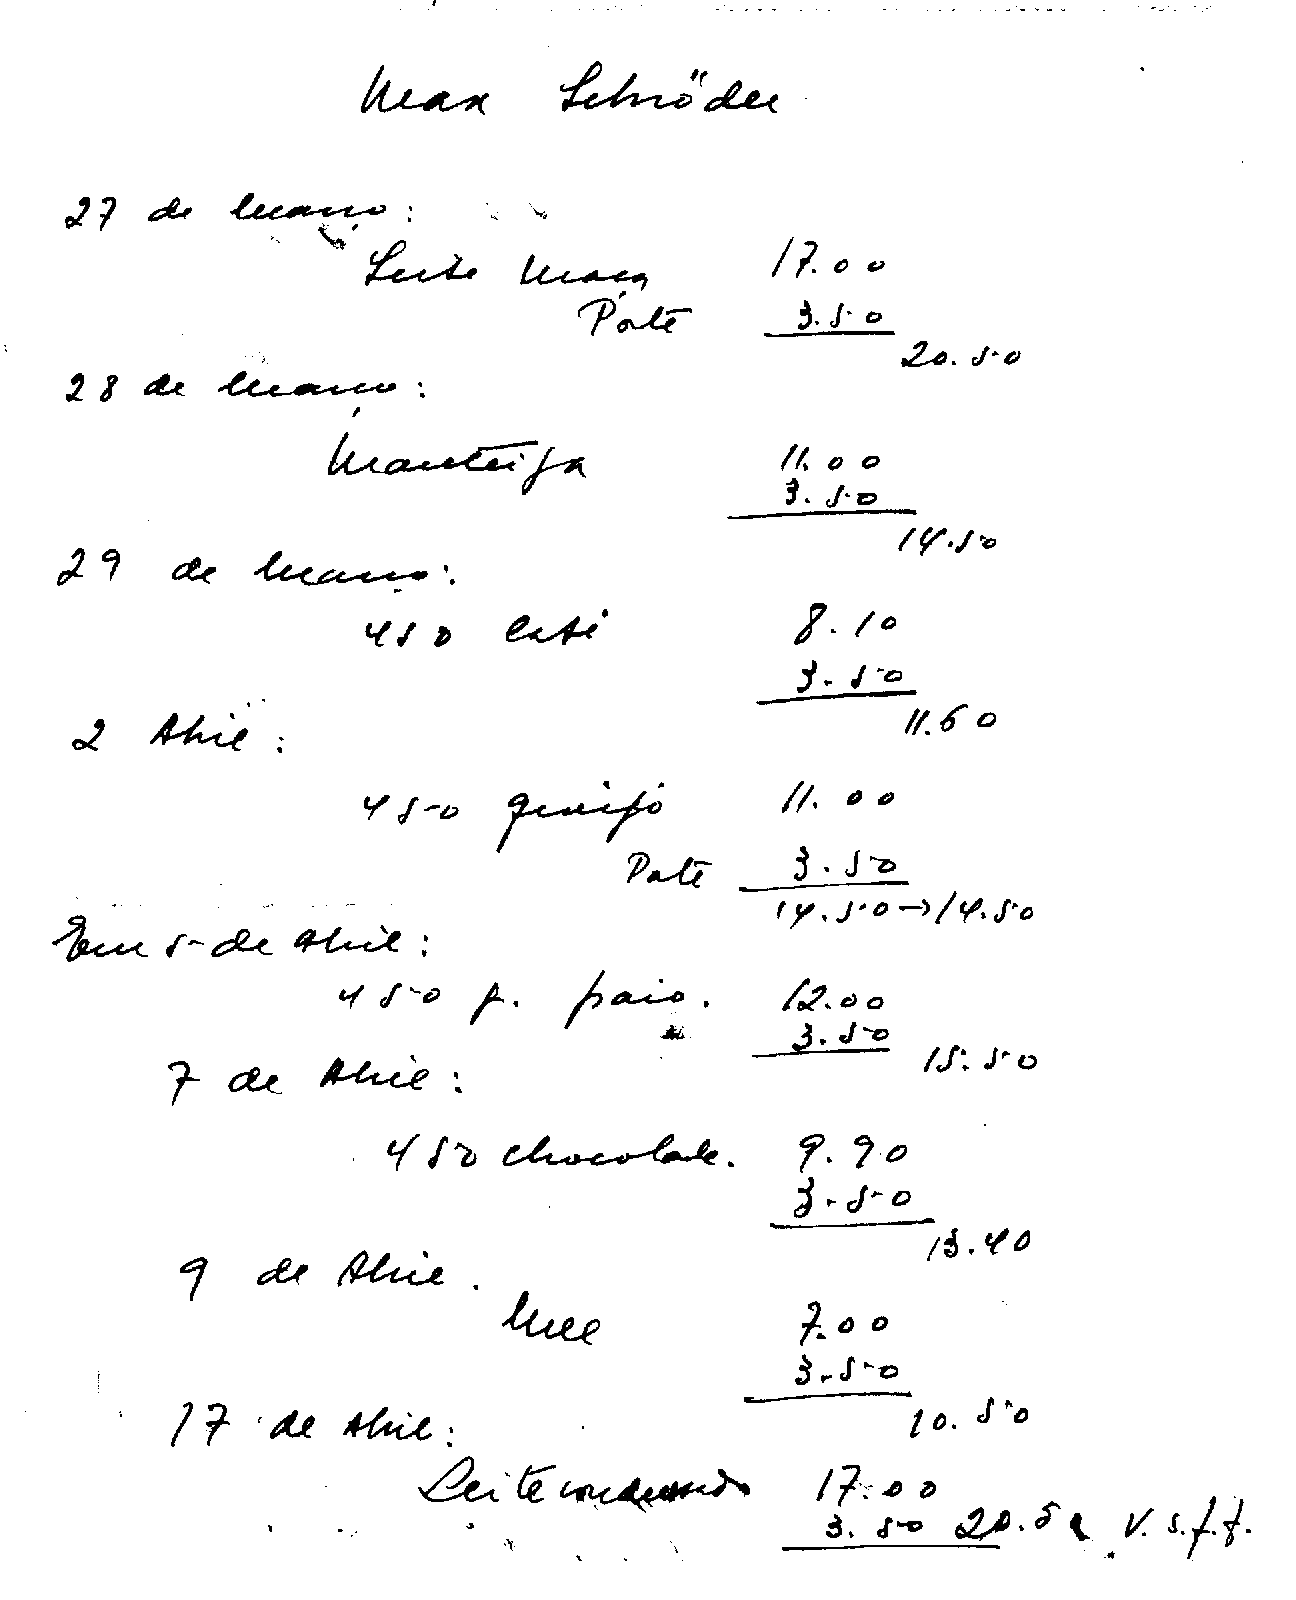 Max Schröder
27 de Março:
Leite Moça 17.00
Porte 3.50
20.50
28 de Março:
Manteiga 11.00
3.50
14.50
29 de Março:
450 Café 8.10
3.50
11.60
2 Abril:
450 queijo 11.00
Porte 3.50
14.50→14.50
Em 5 de Abril:
450 p. paio. 12.00
3.50
15.50
7 de Abril:
450 chocolate. 9.90
3.50
13.40
9 de Abril.
Mel 7.00
3.50
10.50
17 de Abril:
Leite condensado 17.00
3.50 20.50 V.S.f.f.